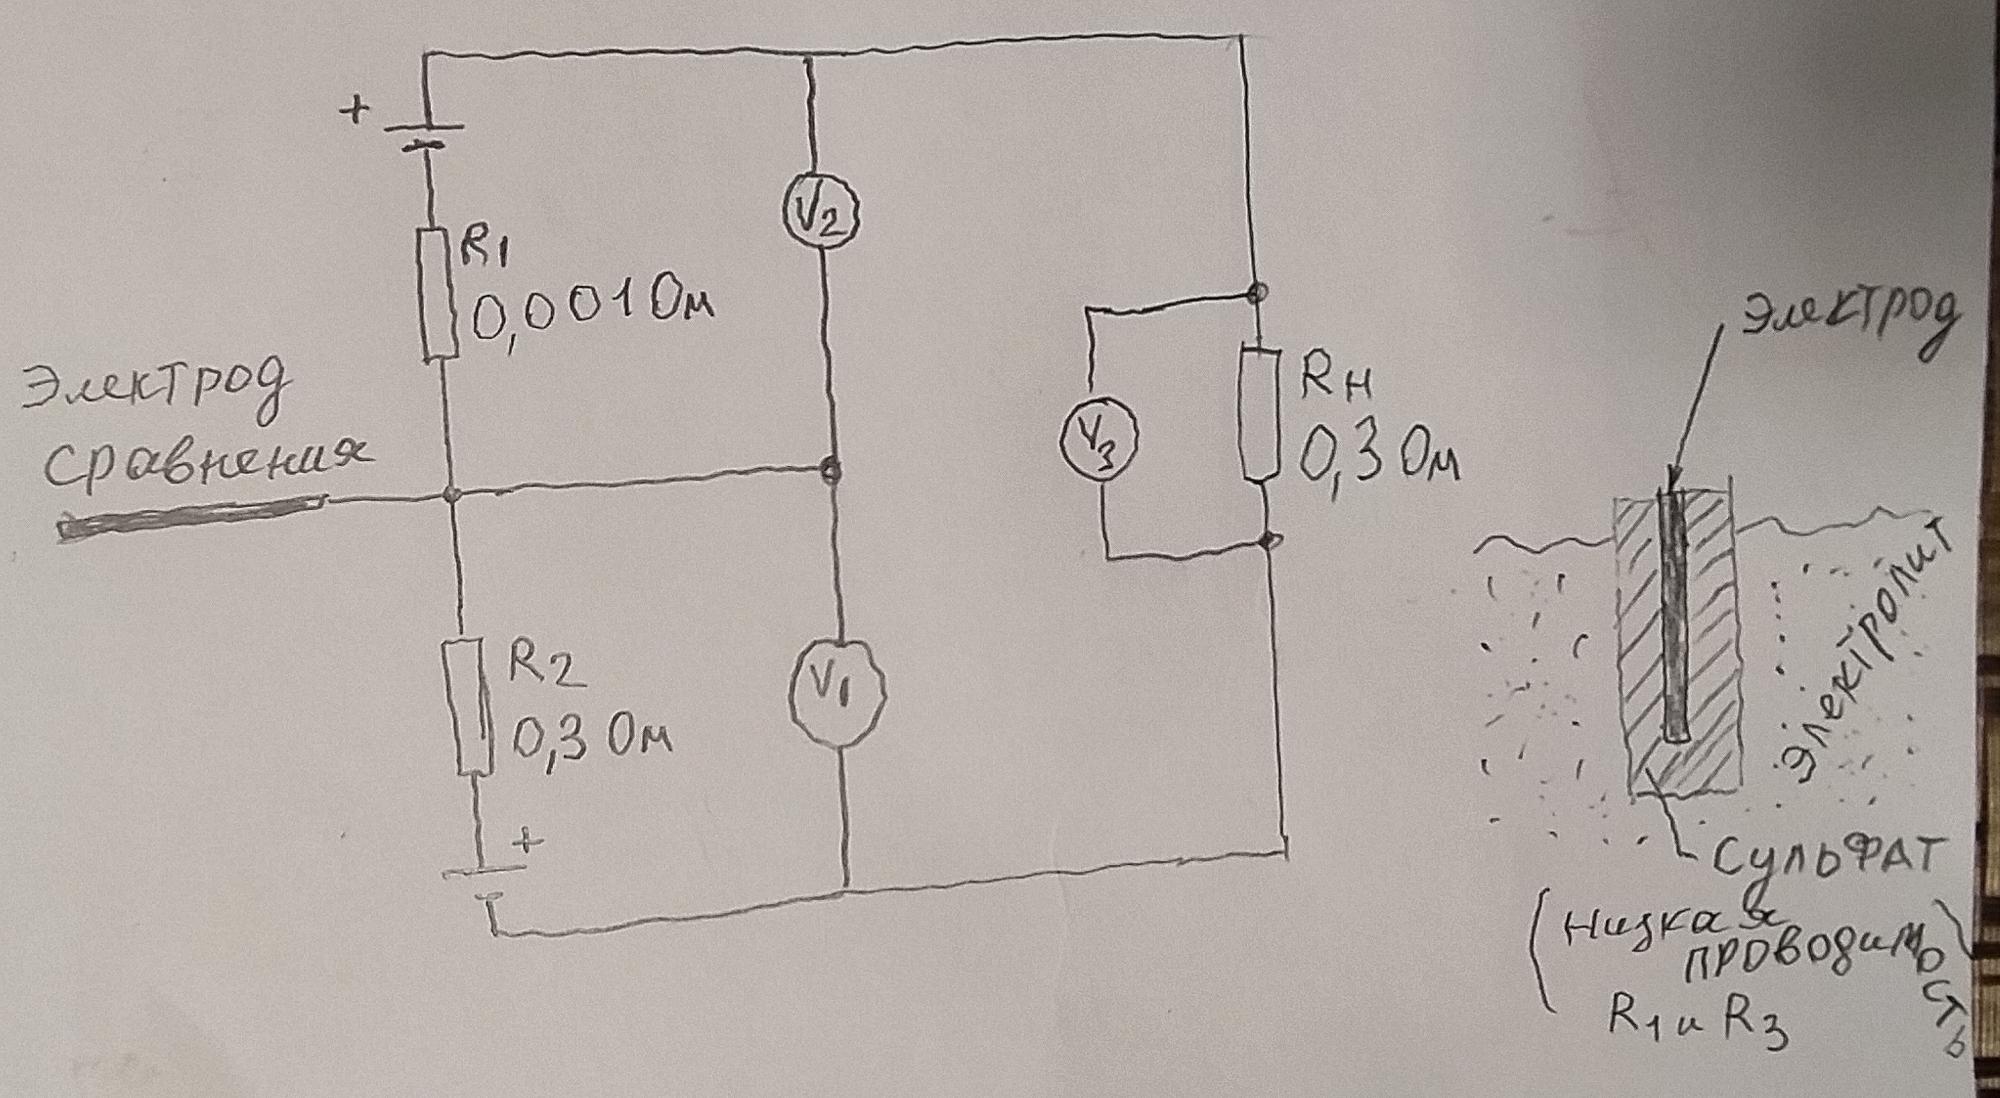 +
V2
R1
0,001 Ом
Электрод
сравнения
V3
Rн
0,3 Ом
R2
0,3 Ом
V1
+
Электрод
Электролит
Сульфат
(Низкая
проводимость)
R1 и R3